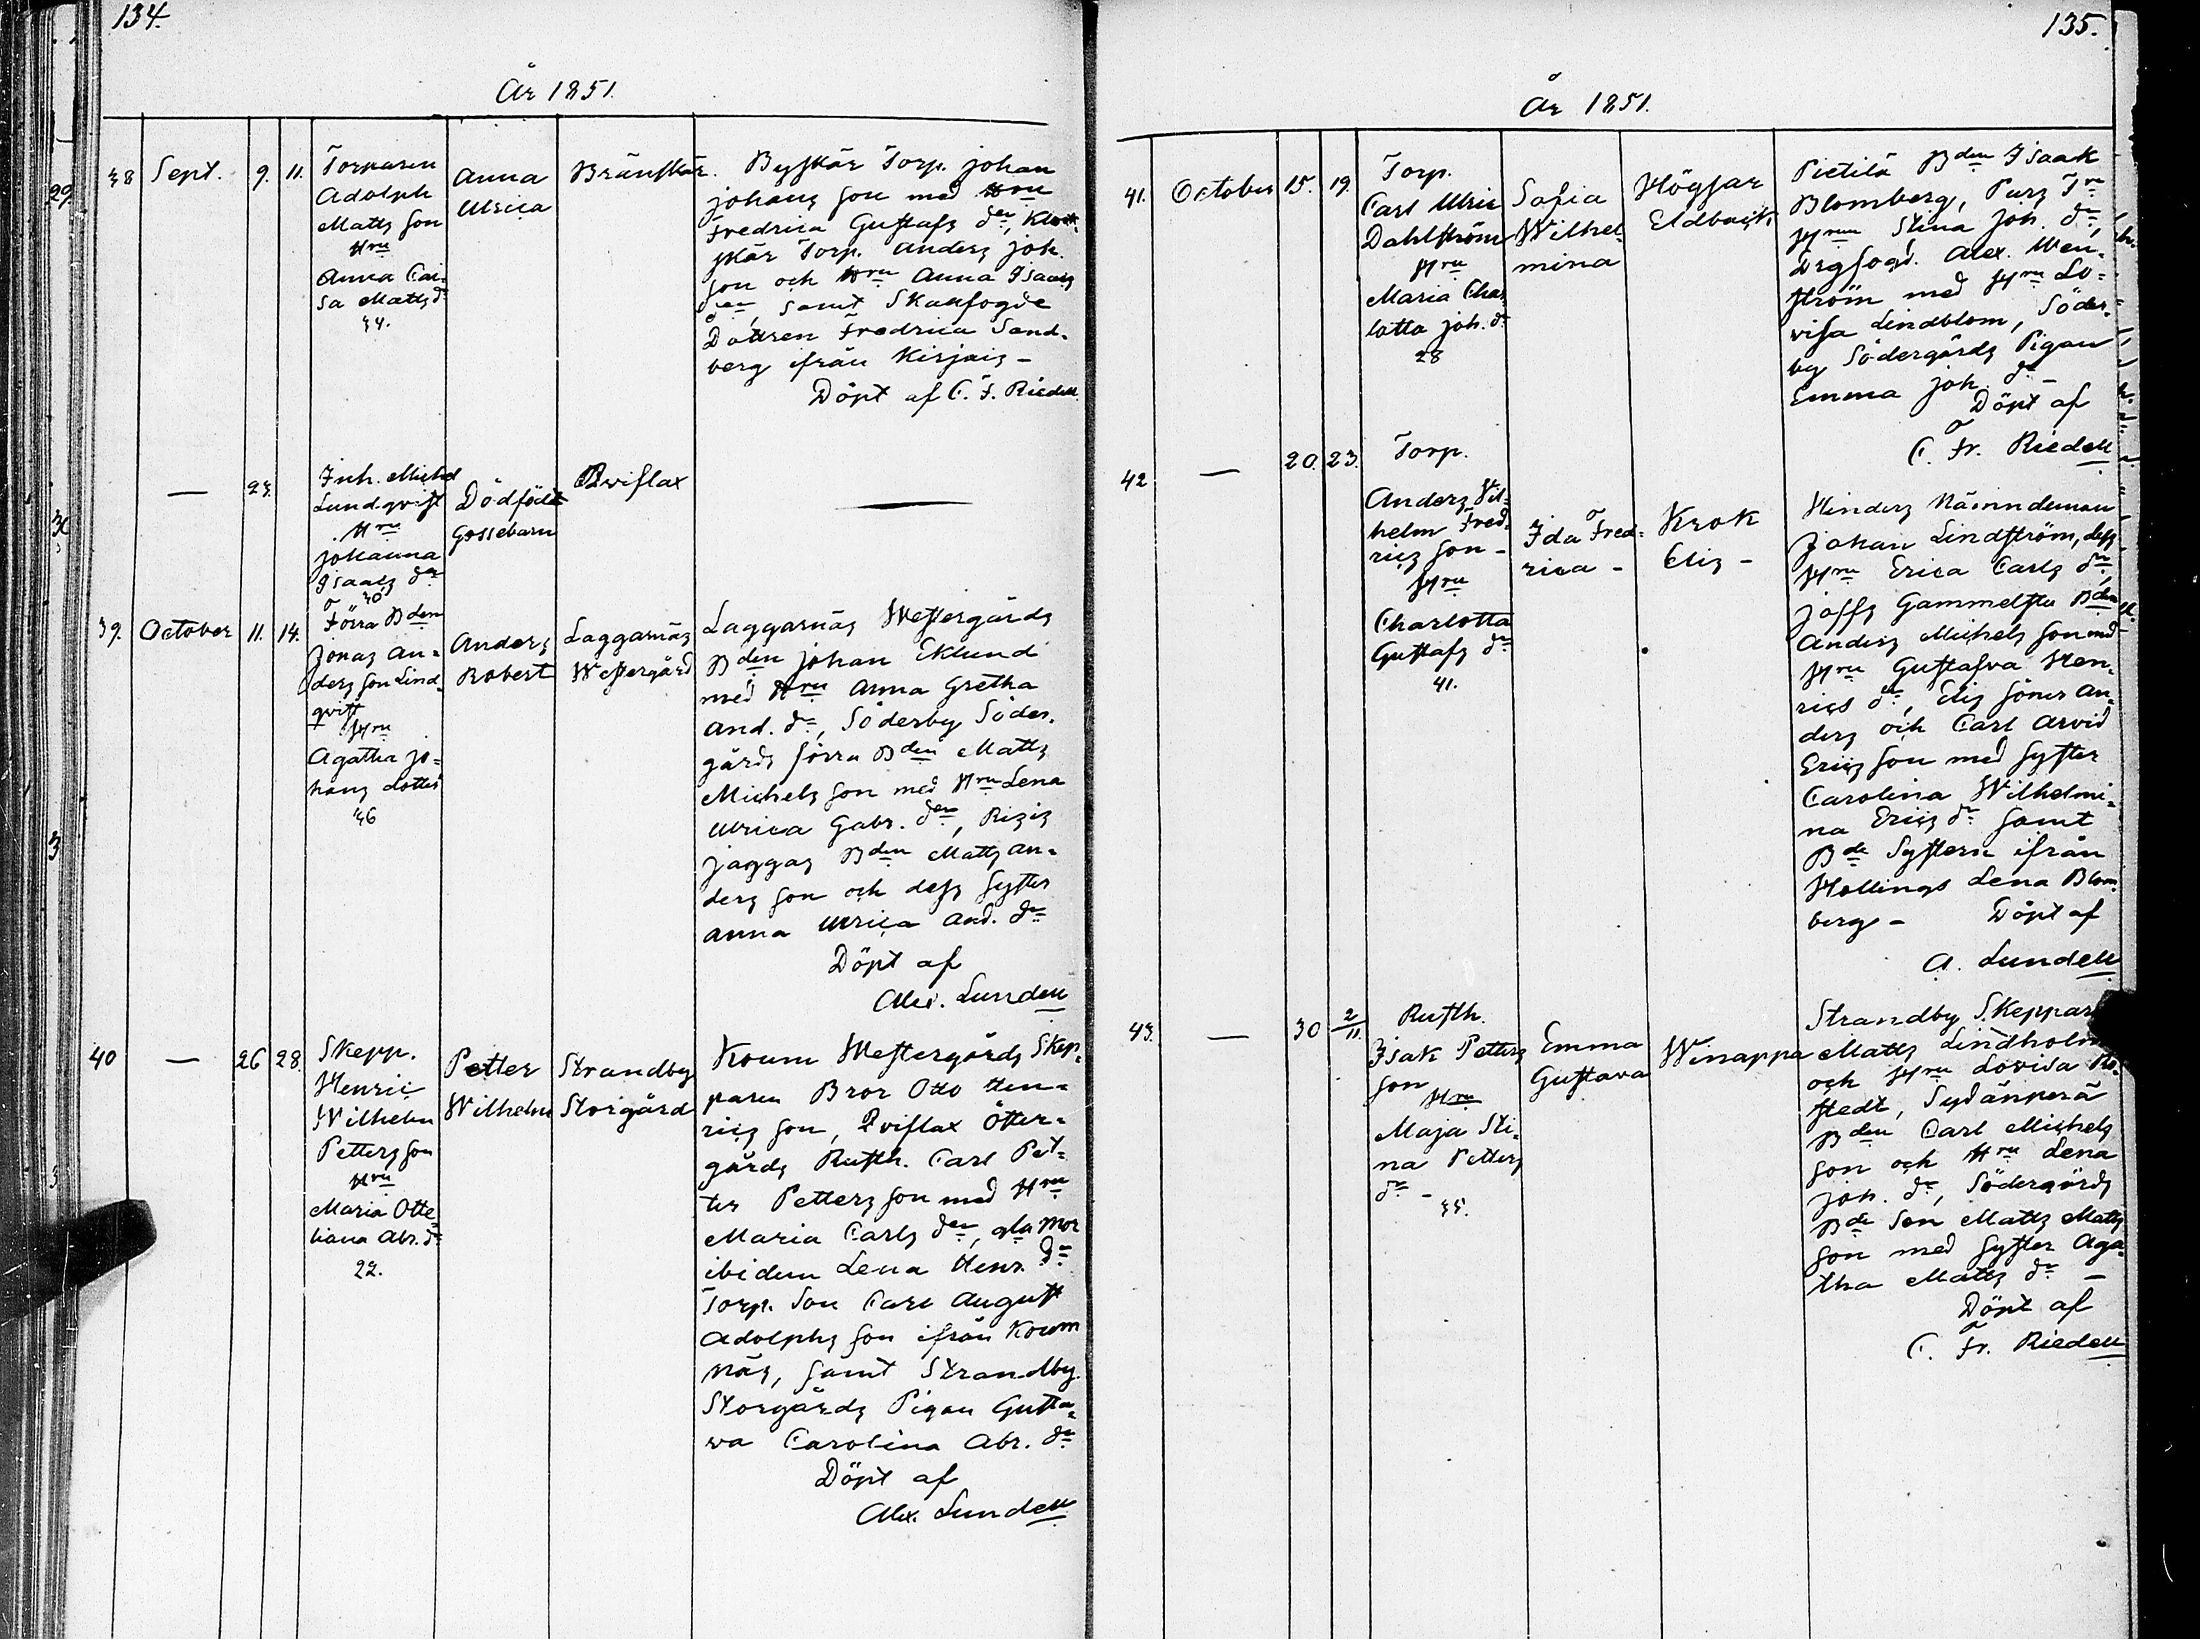 134.
År 1851.
38 Sept. 9. 11. Torparen
Adolph
Matts son
Hru
Anna Cai-
sa Matts dr
34.
Anna
Ulrica
Bränskär.
Byskär Torp. Johan
Johans son med Hru
Fredrica Gustafs der, Klock-
skär Torp. Anders Joh.
son och Hru Anna Isaacs
der, samt Skaufogde
Dottren Fredrica Sand-
berg ifrån Kirjais -
Döpt af C. F. Riedell
— 23. Inh. Michel
Lundqvist
Hru
Johanna
Isaacs dr
30
Dödfödt
Gossebarn
Qviflax
39. October 11. 14. Förra Bden
Jonas An-
ders son Lind-
qvist
Hru
Agatha Jo-
hans dotter
46
Anders
Robert
Laggarnäs
Westergård
Laggarnäs Westergårds
Bden Johan Eklund
med Hru Anna Gretha
And. dr, Söderby Söder-
gårds förra Bden Matts
Michels son med Hru Lena
Ulrica Gabr. der, Rizis
Jaggas Bden Matts An-
ders son och dess syster
Anna Ulrica And. dr
Döpt af
Alex. Lundell
40 — 26 28. Skepp.
Henric
Wilhelm
Petters son
Hru
Maria Otte-
liana Abr. dr
22.
Petter
Wilhelm
Strandby
Storgård
Koum Westergårds Skep-
paren Bror Otto Hen-
rics son, Qviflax Öster-
gårds Rusth. Carl Pet-
ter Petters son med Hru
Maria Carls der, gla mor
ibidem Lena Henr. dr
Torp. Son Carl August
Adolphs son ifrån Koum
näs, samt Strandby
Storgårds Pigan Gusta-
va Carolina Abr. dr
Döpt af
Alex. Lundell
135.
År 1851.
41. October 15. 19. Torp.
Carl Ulric
Dahlström
Hru
Maria Char-
lotta Joh. dr
28
Sofia
Wilhel-
mina
Högsar
Eldback
Pietilä Bden Isaak
Blomberg, Purs
Hrun Stina Joh. dr,
Drgfogd. Alex. Wen-
ström med Hru Lo-
visa Lindblom, Söder-
by Södergårds Pigan
Emma Joh. dr -
Döpt af
C. Fr. Riedell
42 — 20. 23. Torp.
Anders Wil-
helm Fred-
rics son -
Hru
Charlotta
Gustafs dr
41.
Ida Fred-
rica -
Krok
Elis -
Hinders Nämndeman
Johan Lindström, dess
Hru Erica Carls dr,
Joffs Gammelstu Bden
Anders Michels son med
Hru Gustafva Hen-
rics dr, Elis Söner An-
ders och Carl Arvid
Erics son med syster
Carolina Wilhelmi-
na Erics dr samt
Bde Systern ifrån
Hollings Lena Blom-
berg - Döpt af
A. Lundell
43. — 30 2/11. Rusth.
Isak Petters
son
Hru
Maja Sti-
na Petters
dr -
35.
Emma
Gustava
Winappa
Strandby Skeppar
Matts Lindholm
och Hru Lovisa Ro-
stedt, Sydänperä
Bden Carl Michels
son och Hru Lena
Joh. dr, Södergårds
Bde Son Matts Matts
son med syster Aga-
tha Matts dr -
Döpt af
C. Fr. Riedell